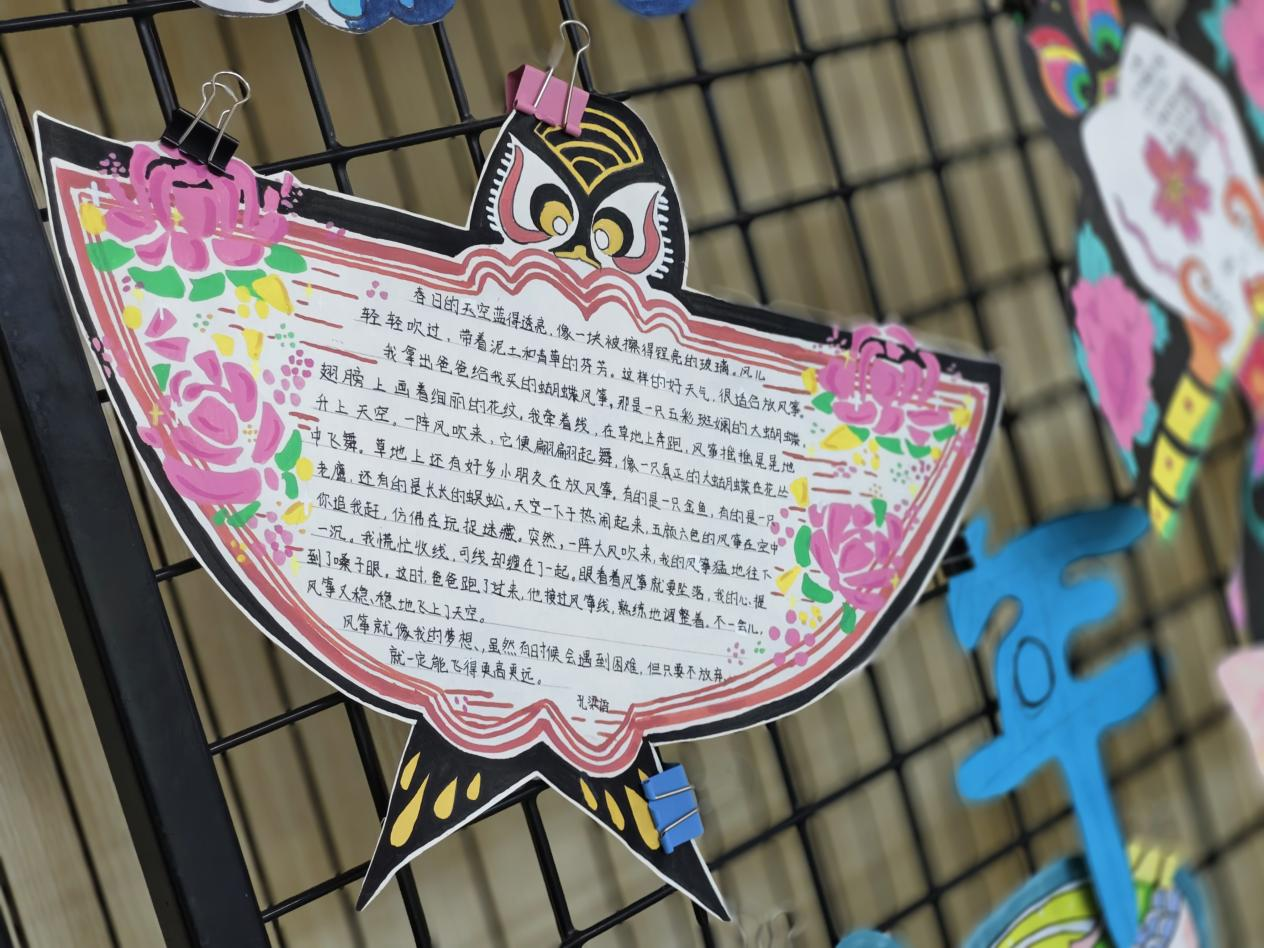 春日的天空蓝得透亮，像一块被擦得锃亮的玻璃。风儿
轻轻吹过，带着泥土和青草的芬芳。这样的好天气，很适合放风筝。
我拿出爸爸给我买的蝴蝶风筝，那是一只五彩斑斓的大蝴蝶，
翅膀上画着细丽的花纹，我牵着线，在草地上奔跑，风筝摇摇晃晃地
升上天空。一阵风吹来，它便翩翩起舞，像一只真正的大蝴蝶在花丛
中飞舞。草地上还有好多小朋友在放风筝。有的是一只金鱼，有的是一只
老鹰，还有的是长长的蜈蚣。天空一下子热闹起来，五颜六色的风筝在空中
你追我赶，仿佛在玩捉迷藏。突然，一阵大风吹来，我的风筝猛地往下
一沉。我慌忙收线，可线却缠在了一起。眼看着风筝就要坠落，我的心提
到了嗓子眼。这时，爸爸跑了过来，他接过风筝线，熟练地调整着。不一会儿，
风筝又稳、稳地飞上了天空。
风筝就像我的梦想，虽然有时候会遇到困难，但只要不放弃，
就一定能飞得更高更远。
年